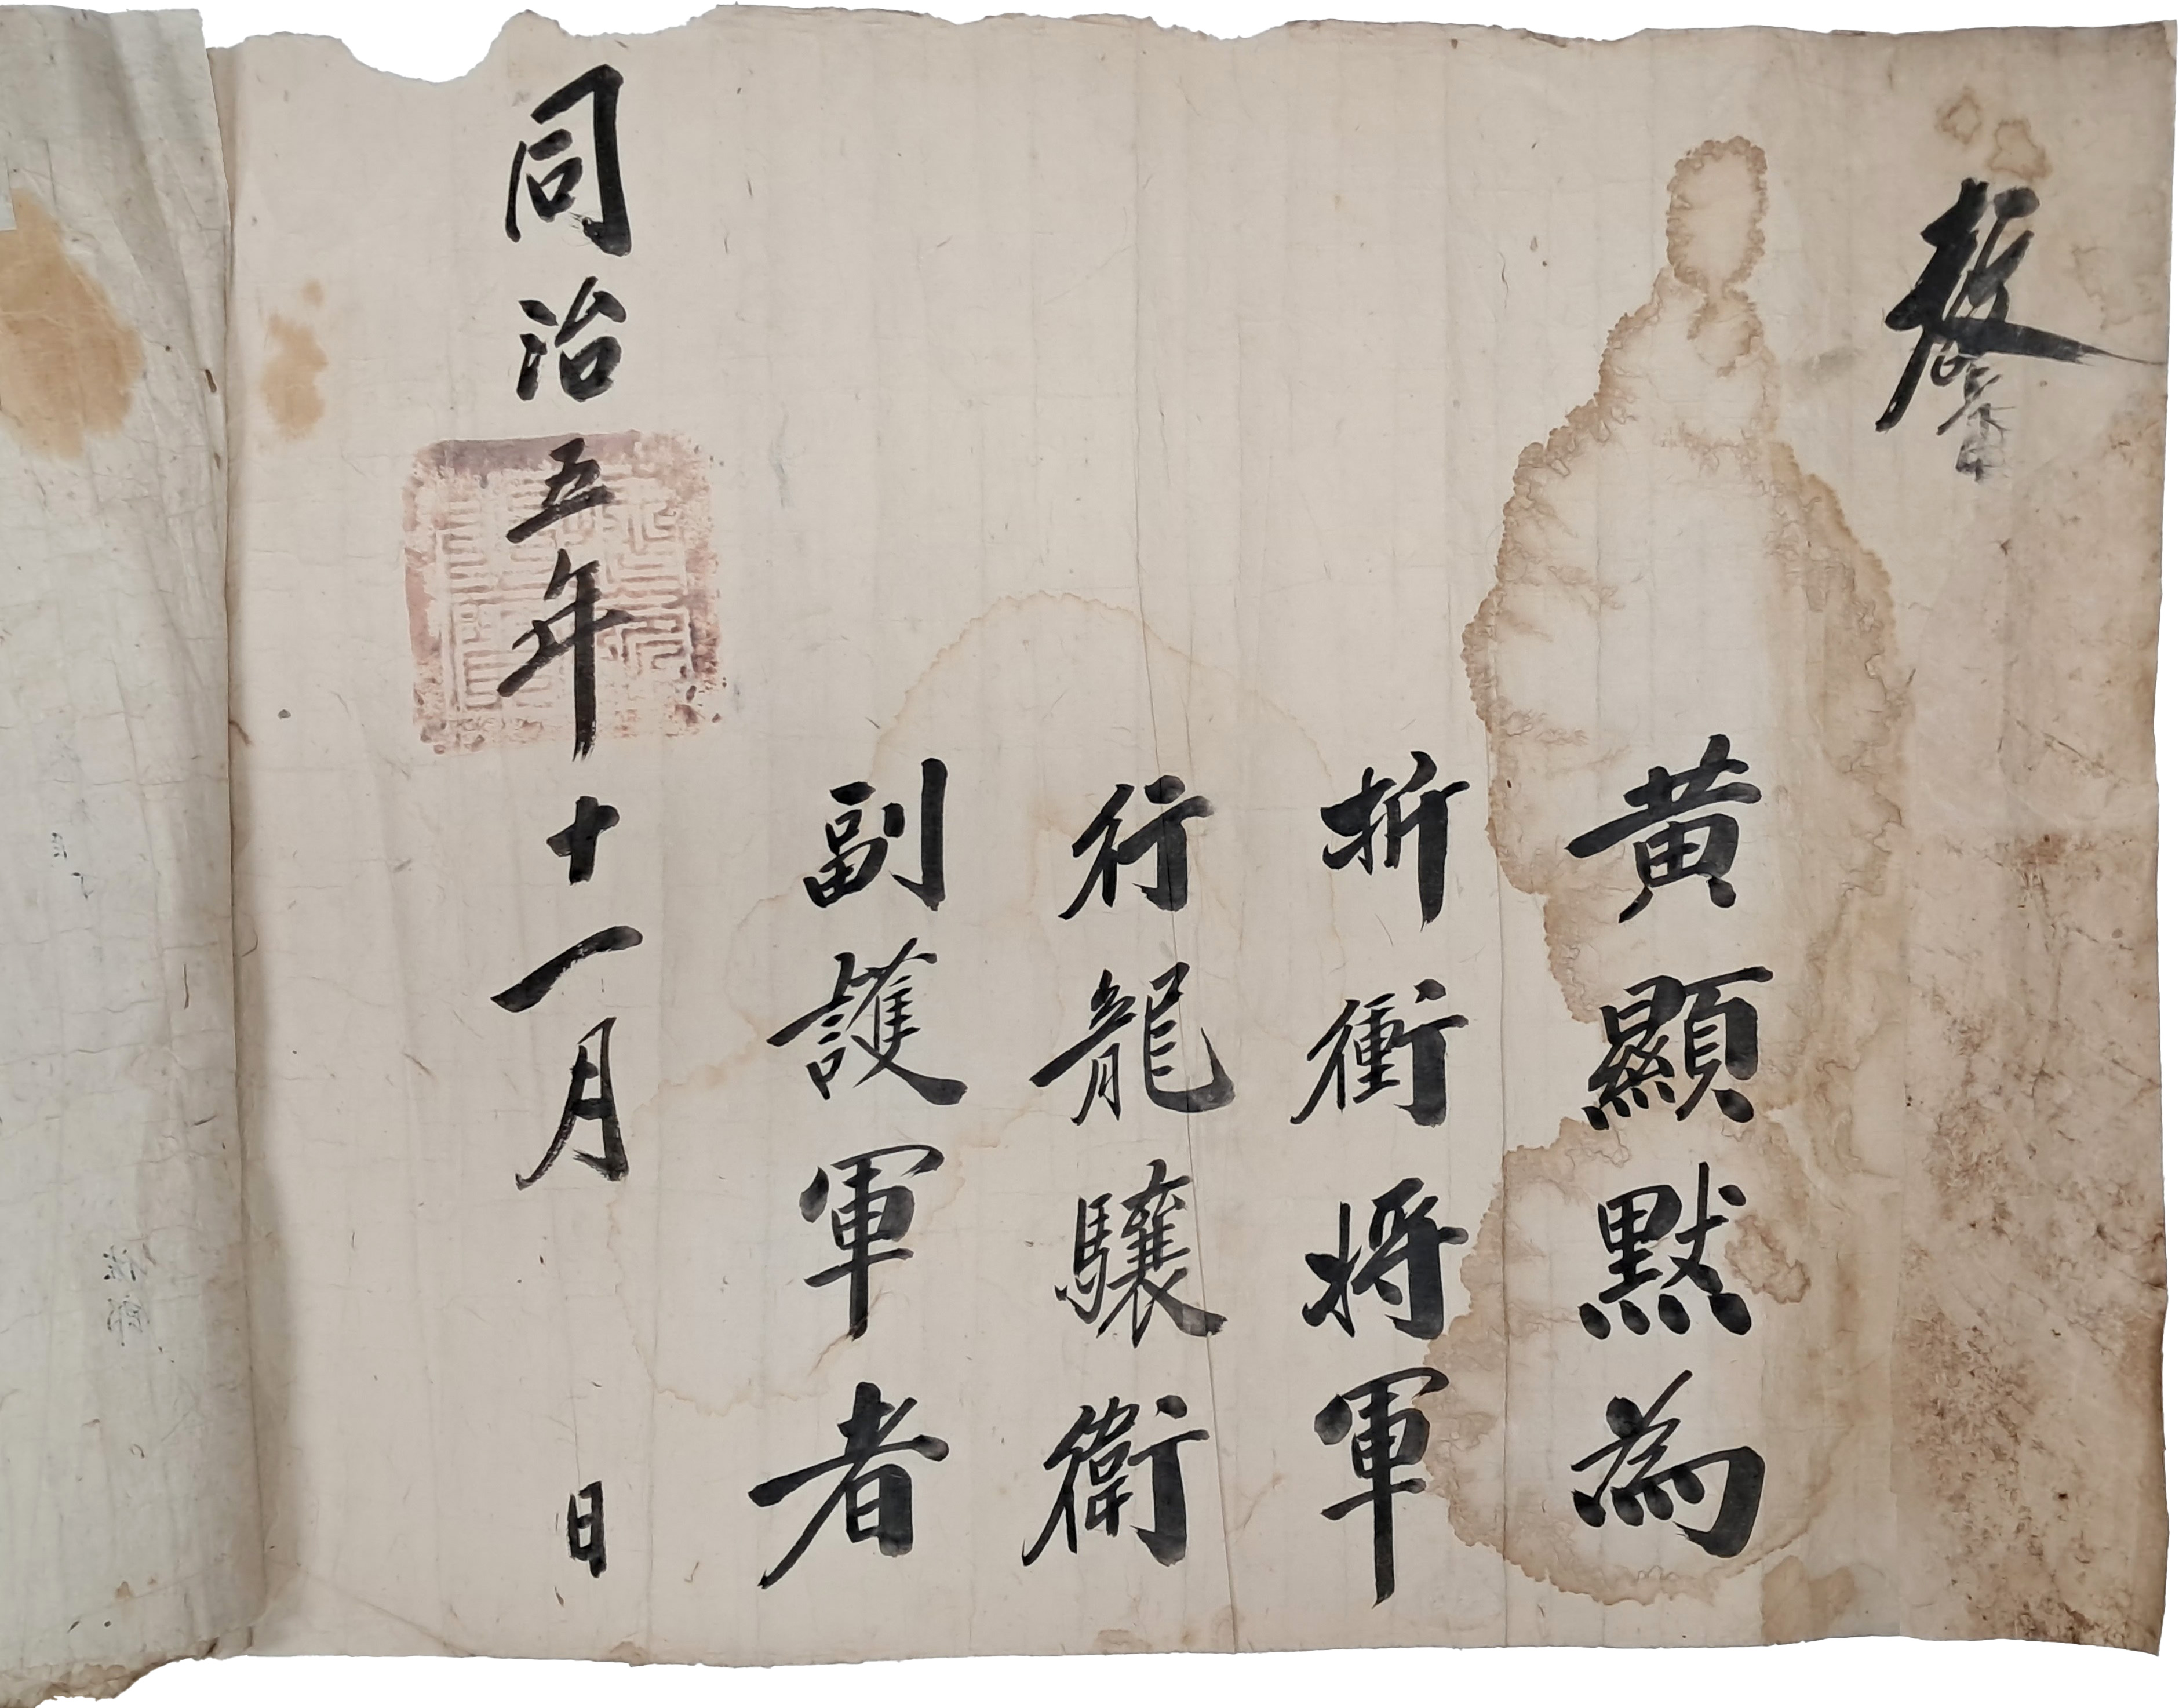 教旨
黃顯黙為
折衝將軍
行龍驤衛
副護軍者
同治五年十一月 日